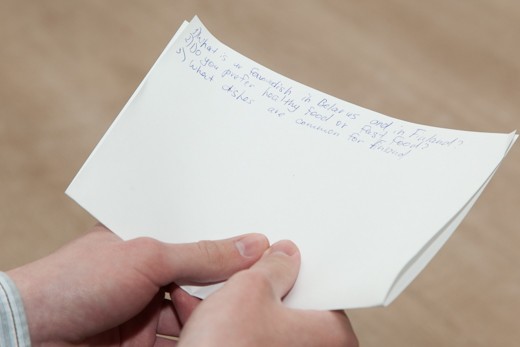 1) What is a favo dish in Belarus and in Finland?
2) Do you prefer healthy food or fast food?
3) What dishes are common for Finland